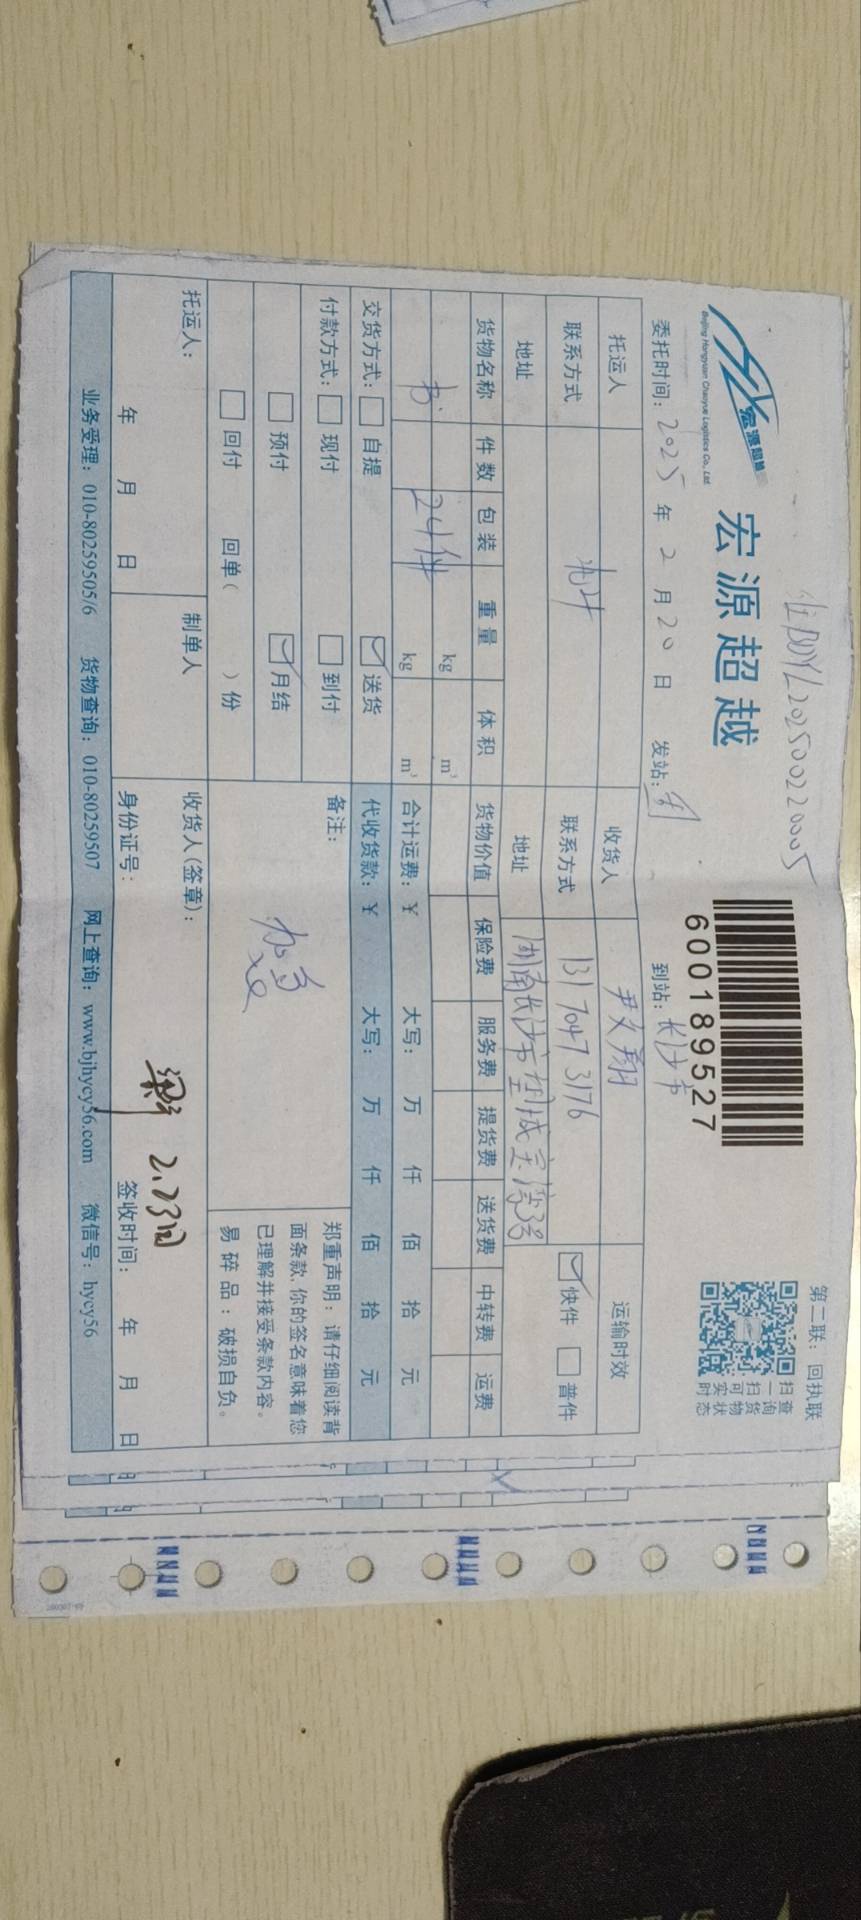 BDYL202500220005
宏源超越
Beijing Hongyuan Chaoyue Logistics Co., Ltd
宏源超越
600189527
第二联：回执联
扫一扫查询货物实时状态
委托时间：2025年2月20日 发站： 到站：长沙市
托运人 收货人 尹文翔 运输时效
联系方式 联系方式 131 7047 3176 快件 普件
地址 地址 湖南长沙市
货物名称 件数 包装 重量 体积 货物价值 保险费 服务费 提货费 送货费 中转费 运费
kg m³
书 24件 kg m³ 合计运费：¥ 大写： 万 仟 佰 拾 元
交货方式： 自提 送货 代收货款：¥ 大写： 万 仟 佰 拾 元
付款方式： 现付 到付 备注：
预付 月结
回付 回单（ ）份
加急
郑重声明：请仔细阅读背
面条款，你的签名意味着您
已理解并接受条款内容。
易碎品：破损自负。
托运人： 制单人 收货人(签章)：
2.23日
年 月 日 身份证号： 签收时间： 年 月 日
业务受理：010-80259505/6 货物查询：010-80259507 网上查询：www.bjhycy56.com 微信号：hycy56